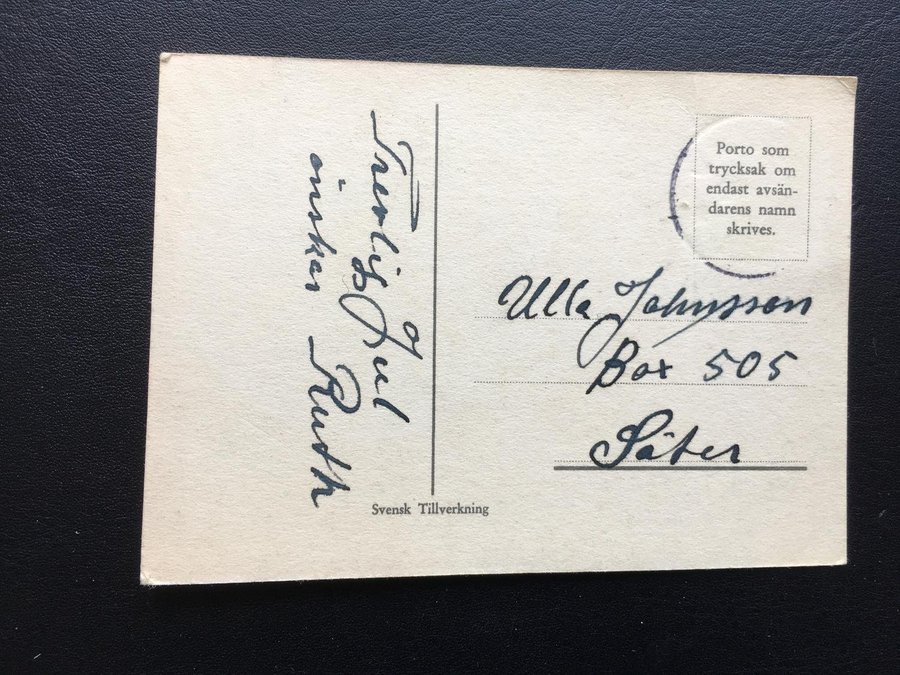 Trevlig Jul
önskar Ruth
Porto som
trycksak om
endast avsän-
darens namn
skrives.
Ulla Johnsson
Box 505
Säter
Svensk Tillverkning